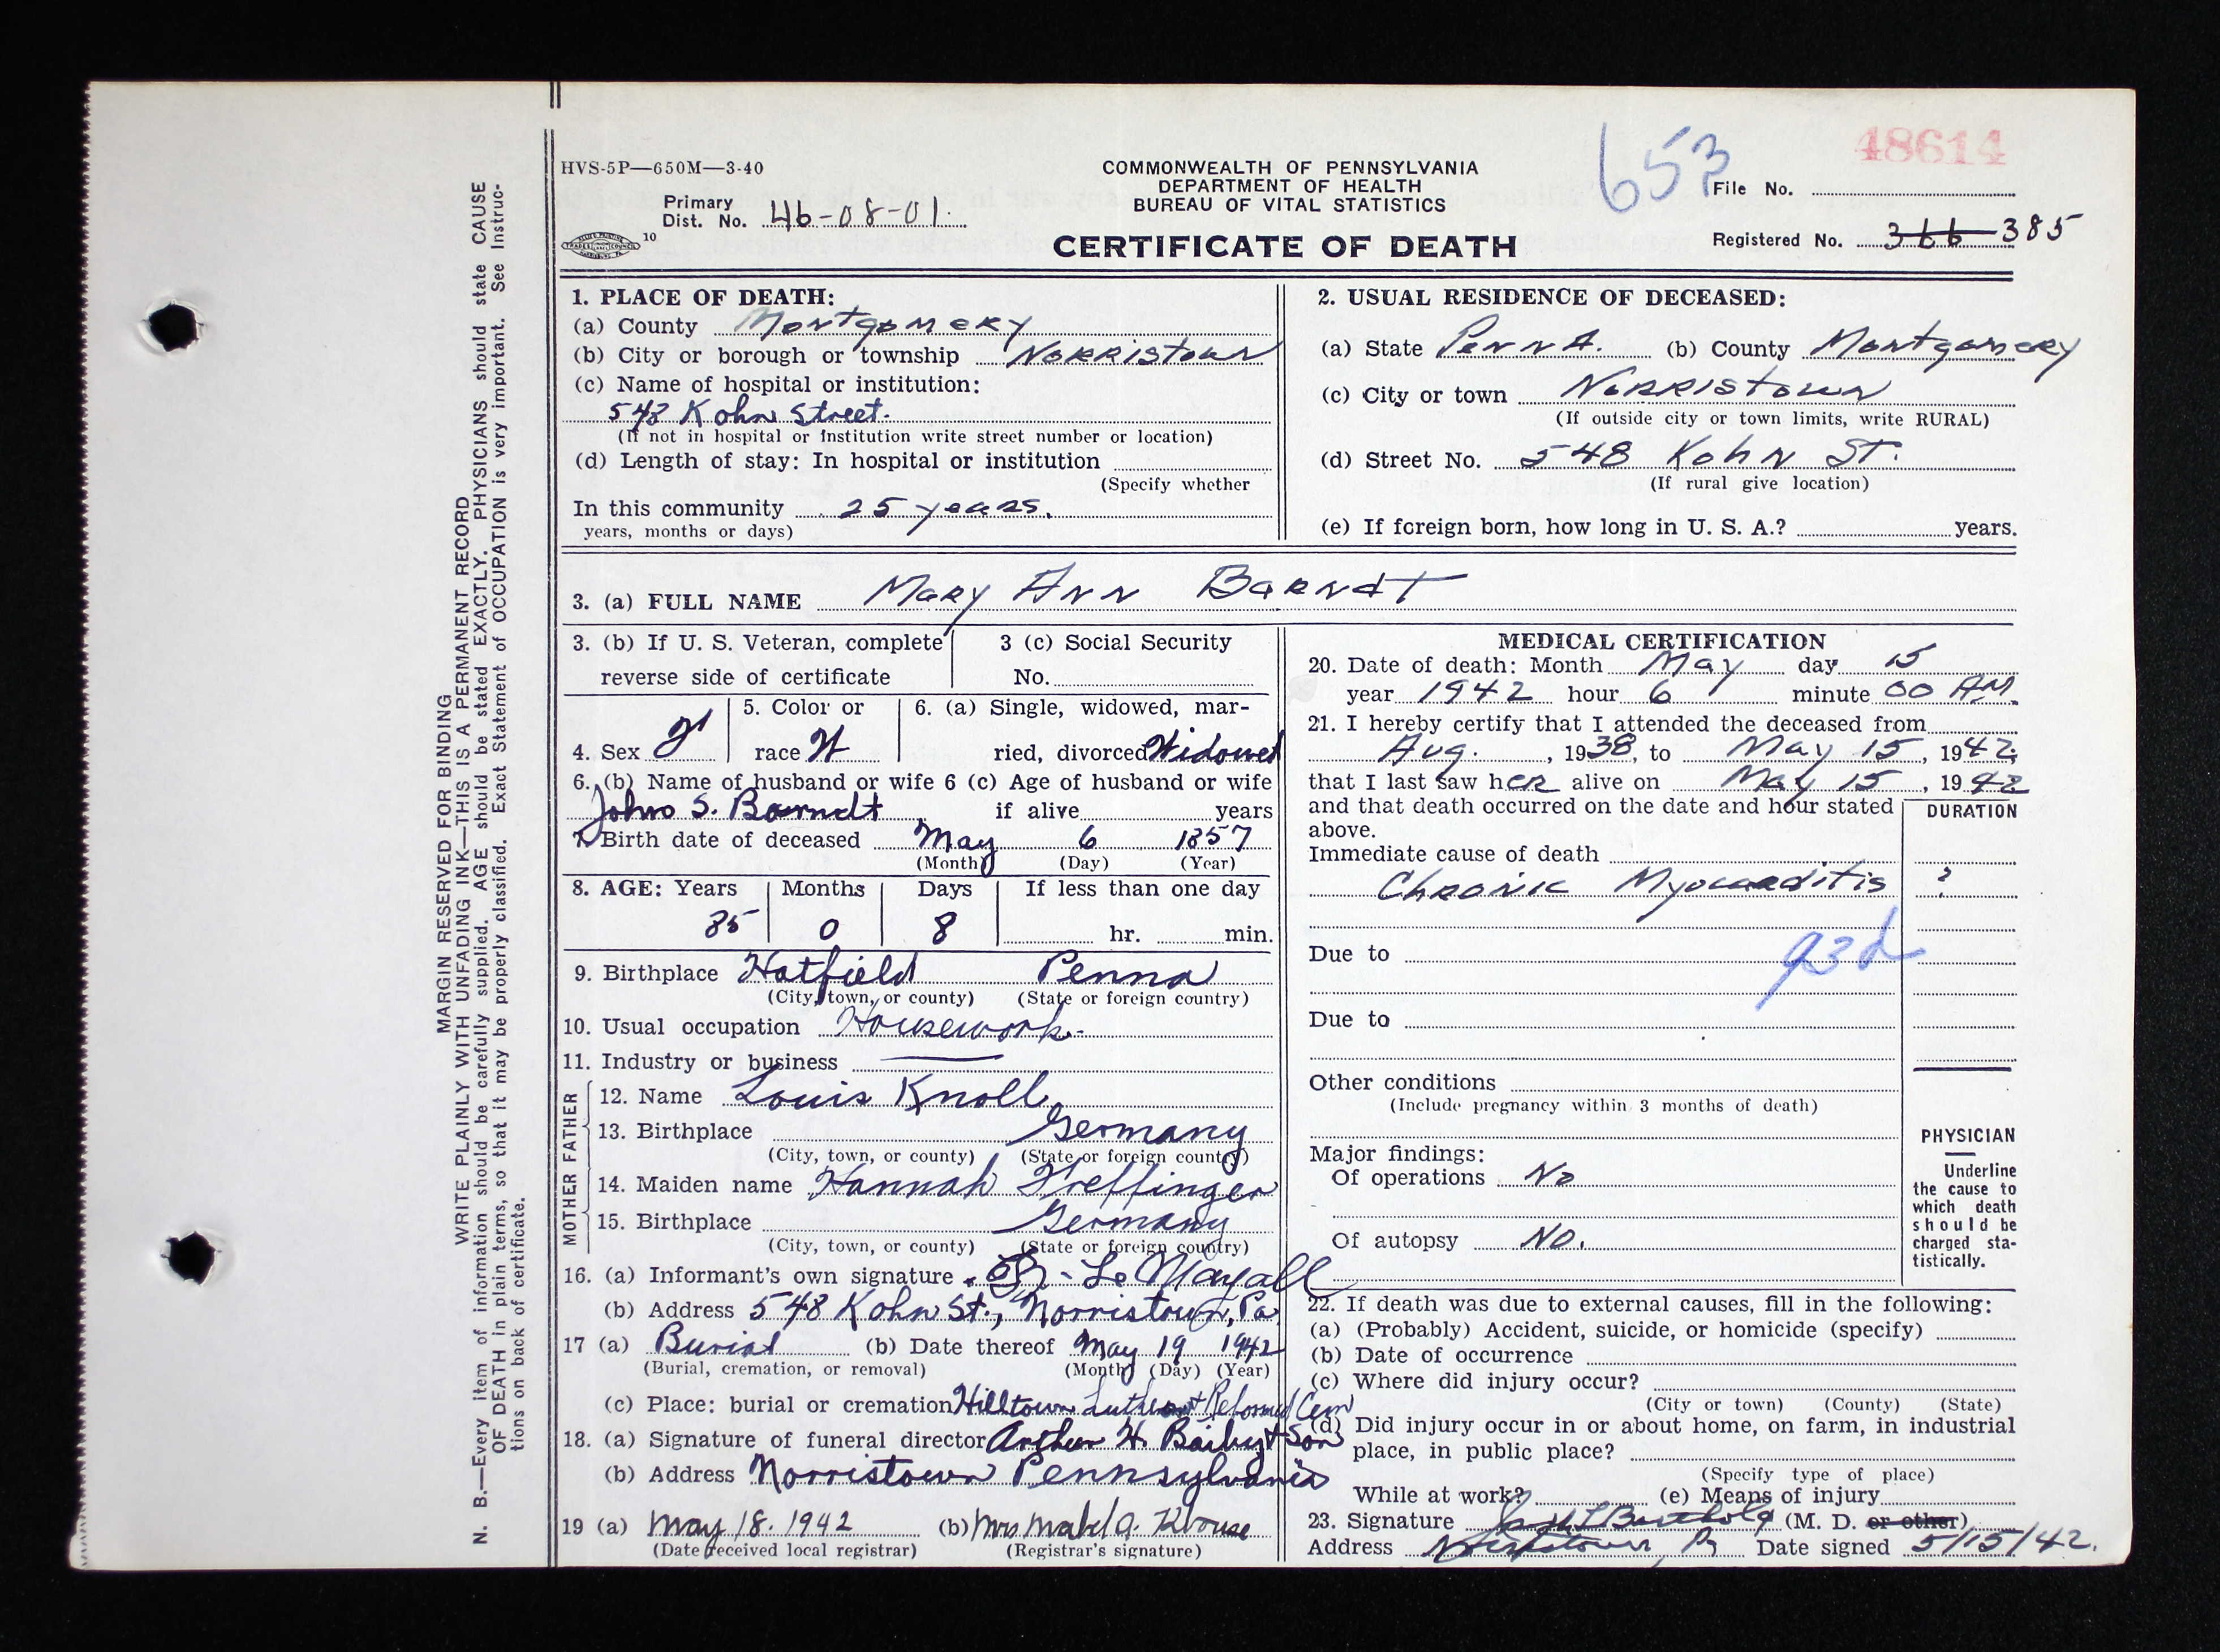 653
48614
HVS-5P—650M—3-40
COMMONWEALTH OF PENNSYLVANIA
DEPARTMENT OF HEALTH
BUREAU OF VITAL STATISTICS
CERTIFICATE OF DEATH
Primary
Dist. No. 46-08-01.
10
File No.
Registered No. 366 385
MARGIN RESERVED FOR BINDING
WRITE PLAINLY WITH UNFADING INK—THIS IS A PERMANENT RECORD
N. B.—Every item of information should be carefully supplied. AGE should be stated EXACTLY. PHYSICIANS should state CAUSE
OF DEATH in plain terms, so that it may be properly classified. Exact Statement of OCCUPATION is very important. See Instruc-
tions on back of certificate.
1. PLACE OF DEATH:
(a) County Montgomery
(b) City or borough or township Norristown
(c) Name of hospital or institution:
548 Kohn Street.
(If not in hospital or institution write street number or location)
(d) Length of stay: In hospital or institution
(Specify whether
In this community 25 years.
years, months or days)
2. USUAL RESIDENCE OF DECEASED:
(a) State Penna. (b) County Montgomery
(c) City or town Norristown
(If outside city or town limits, write RURAL)
(d) Street No. 548 Kohn St.
(If rural give location)
(e) If foreign born, how long in U. S. A.? years.
3. (a) FULL NAME Mary Ann Barndt
3. (b) If U. S. Veteran, complete
reverse side of certificate
3 (c) Social Security
No.
4. Sex F
5. Color or
race W
6. (a) Single, widowed, mar-
ried, divorced Widowed
6. (b) Name of husband or wife 6 (c) Age of husband or wife
John S. Barndt if alive years
7. Birth date of deceased May 6 1857
(Month) (Day) (Year)
8. AGE: Years Months Days If less than one day
85 0 8 hr. min.
9. Birthplace Hatfield Penna
(City, town, or county) (State or foreign country)
10. Usual occupation Housework
11. Industry or business
FATHER
12. Name Louis Knoll
13. Birthplace Germany
(City, town, or county) (State or foreign country)
MOTHER
14. Maiden name Hannah Heffinger
15. Birthplace Germany
(City, town, or county) (State or foreign country)
16. (a) Informant's own signature Le Mayall
(b) Address 548 Kohn St., Norristown, Pa
17 (a) Burial (b) Date thereof May 19 1942
(Burial, cremation, or removal) (Month) (Day) (Year)
(c) Place: burial or cremation Hilltown Lutheran + Reformed Cem
18. (a) Signature of funeral director Arthur H. Baily + Son
(b) Address Norristown Pennsylvania
19 (a) May 18. 1942 (b) Mrs Mabel A. Klouse
(Date received local registrar) (Registrar's signature)
MEDICAL CERTIFICATION
20. Date of death: Month May day 15
year 1942 hour 6 minute 00 AM.
21. I hereby certify that I attended the deceased from
Aug. , 1938, to May 15, 1942
that I last saw her alive on May 15, 1942
and that death occurred on the date and hour stated
above.
DURATION
Immediate cause of death
Chronic Myocarditis ?
93d
Due to
Due to
Other conditions
(Include pregnancy within 3 months of death)
Major findings:
Of operations No
Of autopsy No.
PHYSICIAN
Underline
the cause to
which death
should be
charged sta-
tistically.
22. If death was due to external causes, fill in the following:
(a) (Probably) Accident, suicide, or homicide (specify)
(b) Date of occurrence
(c) Where did injury occur?
(City or town) (County) (State)
(d) Did injury occur in or about home, on farm, in industrial
place, in public place?
(Specify type of place)
While at work? (e) Means of injury
23. Signature (M. D. or other)
Address Norristown, Pa Date signed 5/15/42.